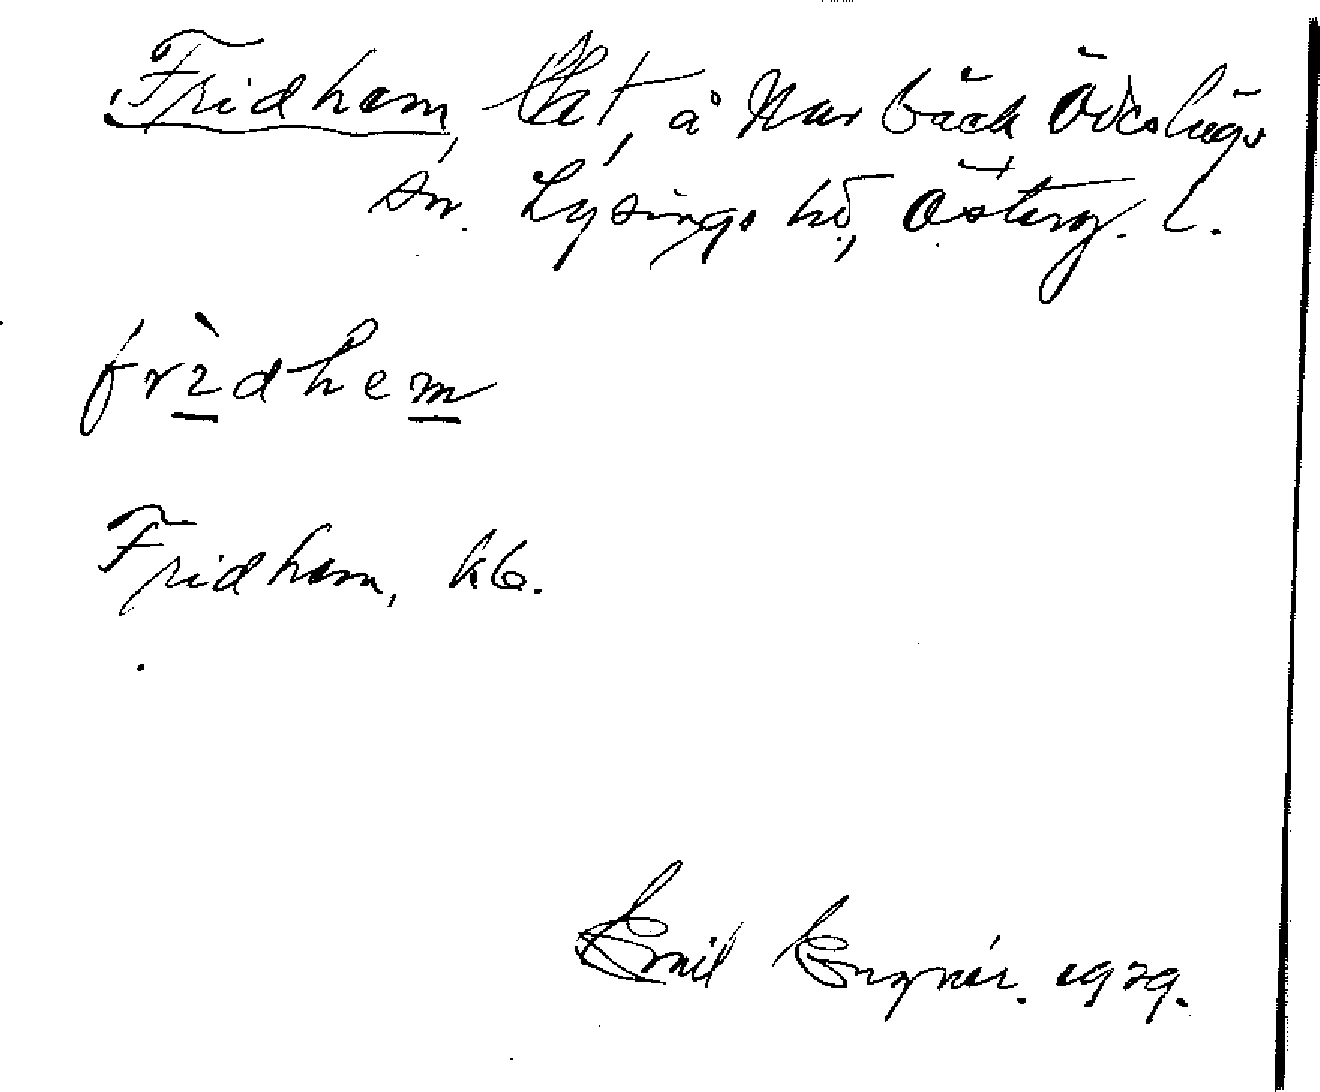 Fridhem, lht, å Narbäck Ödeshögs
sn. Lysings hd, Österg. l.
frìdhem
Fridhem, kb.
Emil Engnér. 1929.